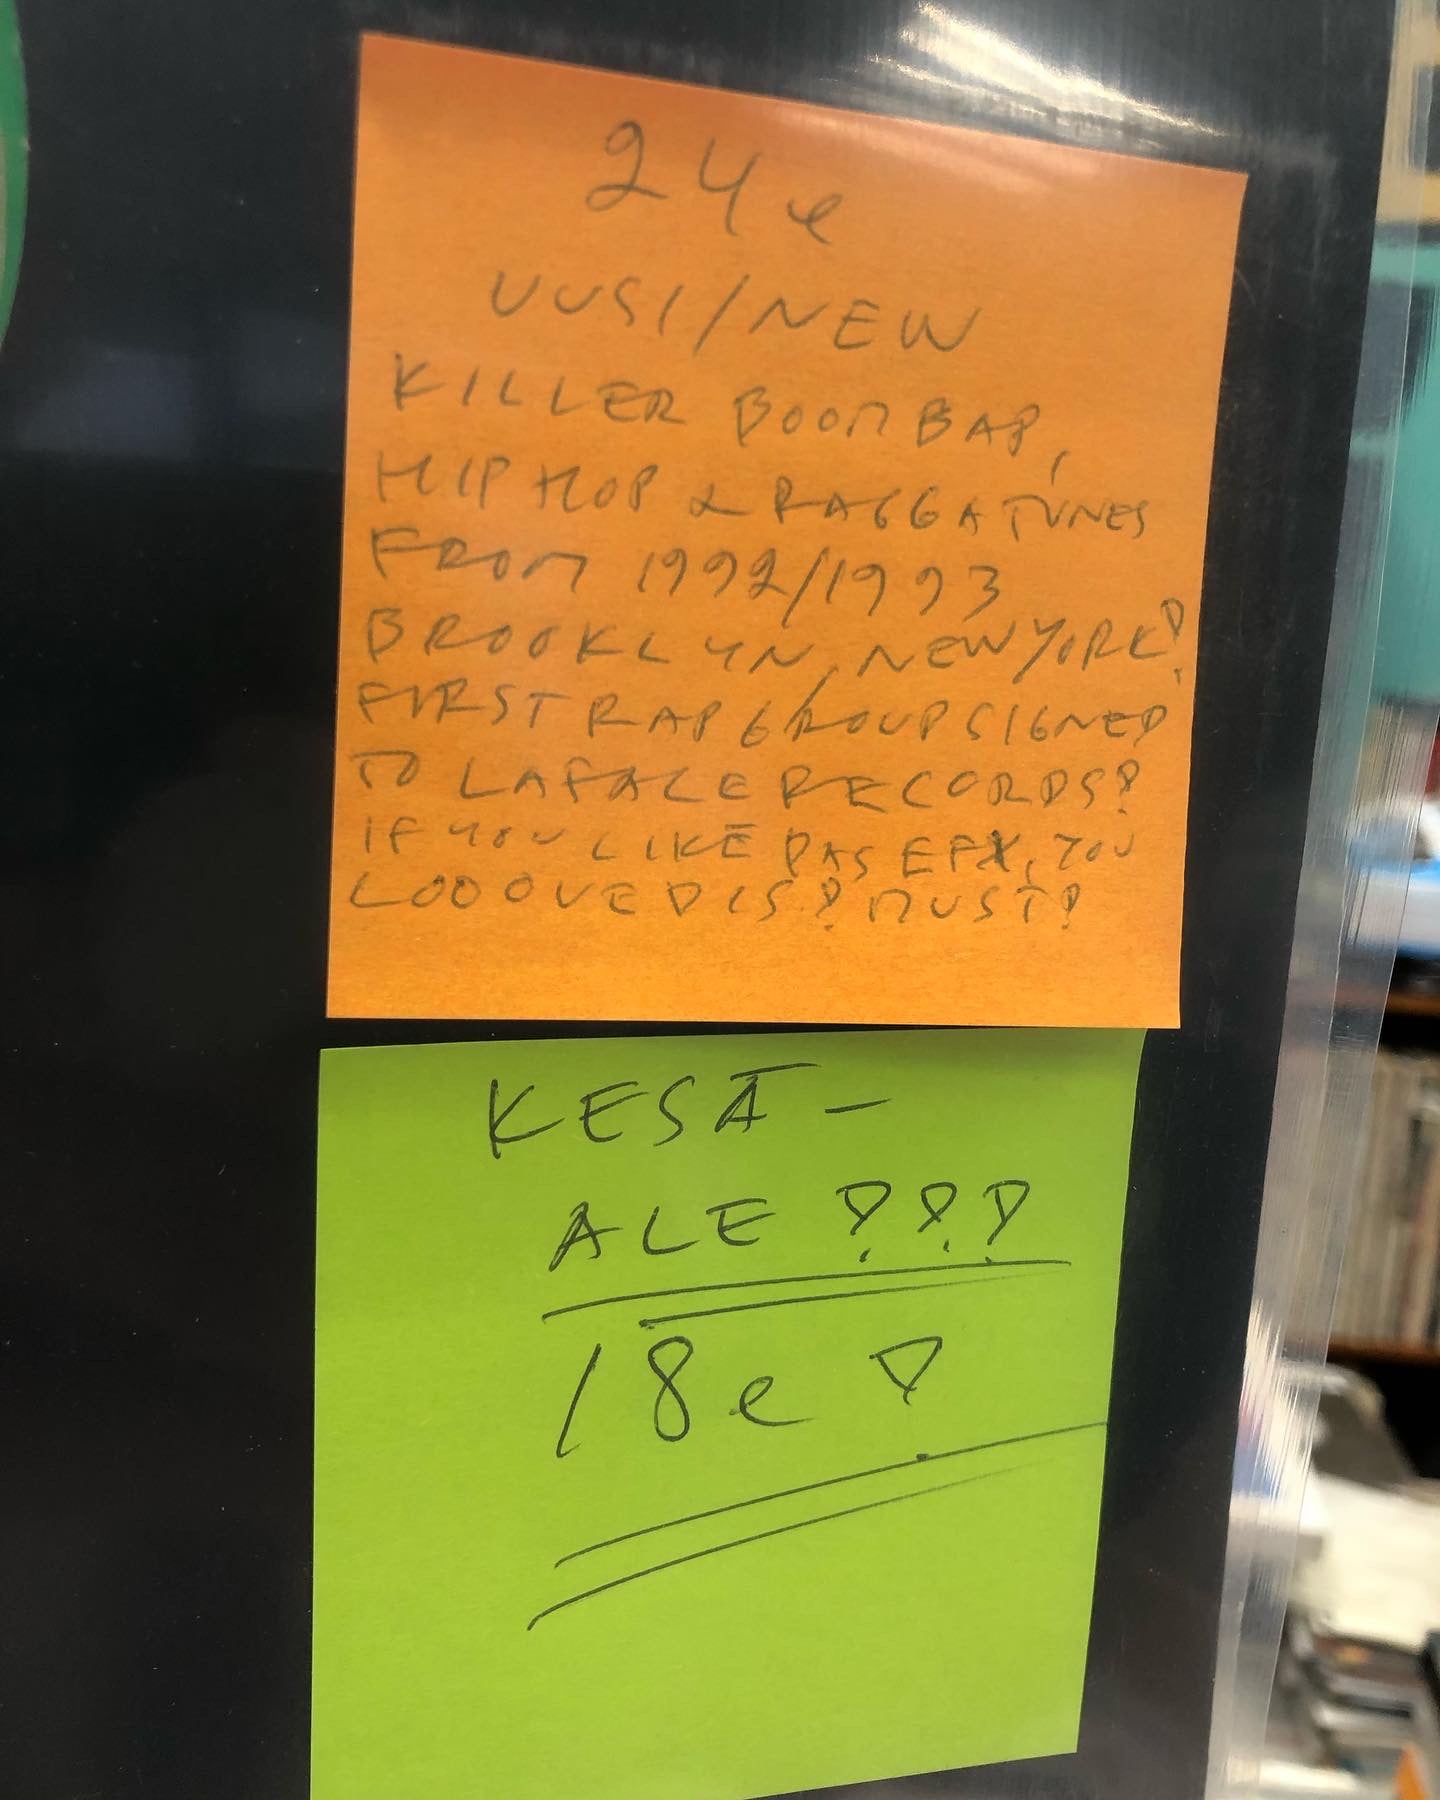 24 e
UUSI/NEW
KILLER BOOM BAP,
HIP HOP & RAGGA TUNES
FROM 1992/1993
BROOKLYN, NEW YORK!
FIRST RAP GROUP SIGNED
TO LAFACE RECORDS!
IF YOU LIKE DAS EFX, YOU
LOOOVE DIS! MUST!
KESÄ-
ALE!!!
18 e!